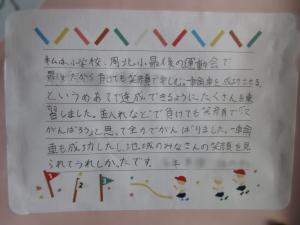 私は、小学校、周北小最後の運動会で
最後だから負けても笑顔で楽しむ。一輪車を成功させる。
というめあてで達成できるようにたくさん練
習しました。玉入れなどで負けても笑顔で「次
がんばろう」と思って全力でがんばりました。一輪
車も成功したし、地域のみなさんの笑顔を見
られてうれしかったです。
1
2
3